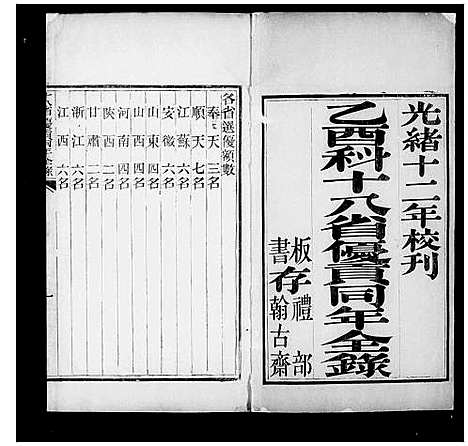 光緒十二年校刊
乙酉科十八省優貢同年全錄
板存禮部
書翰古齋
各省選優額數
奉天三名
順天七名
江蘇六名
安徽六名
山東四名
河南四名
陝西二名
甘肅二名
浙江六名
江西六名